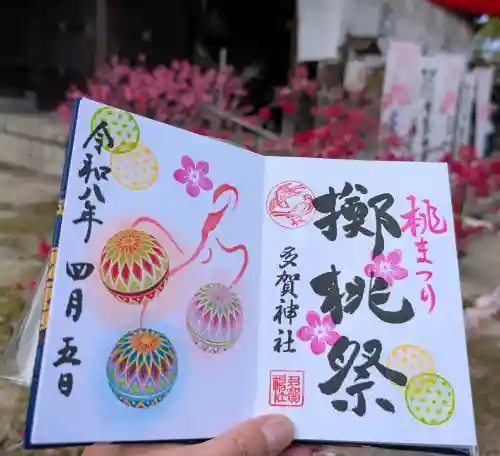 桃まつり
擲桃祭
多賀神社
令和八年
四月五日